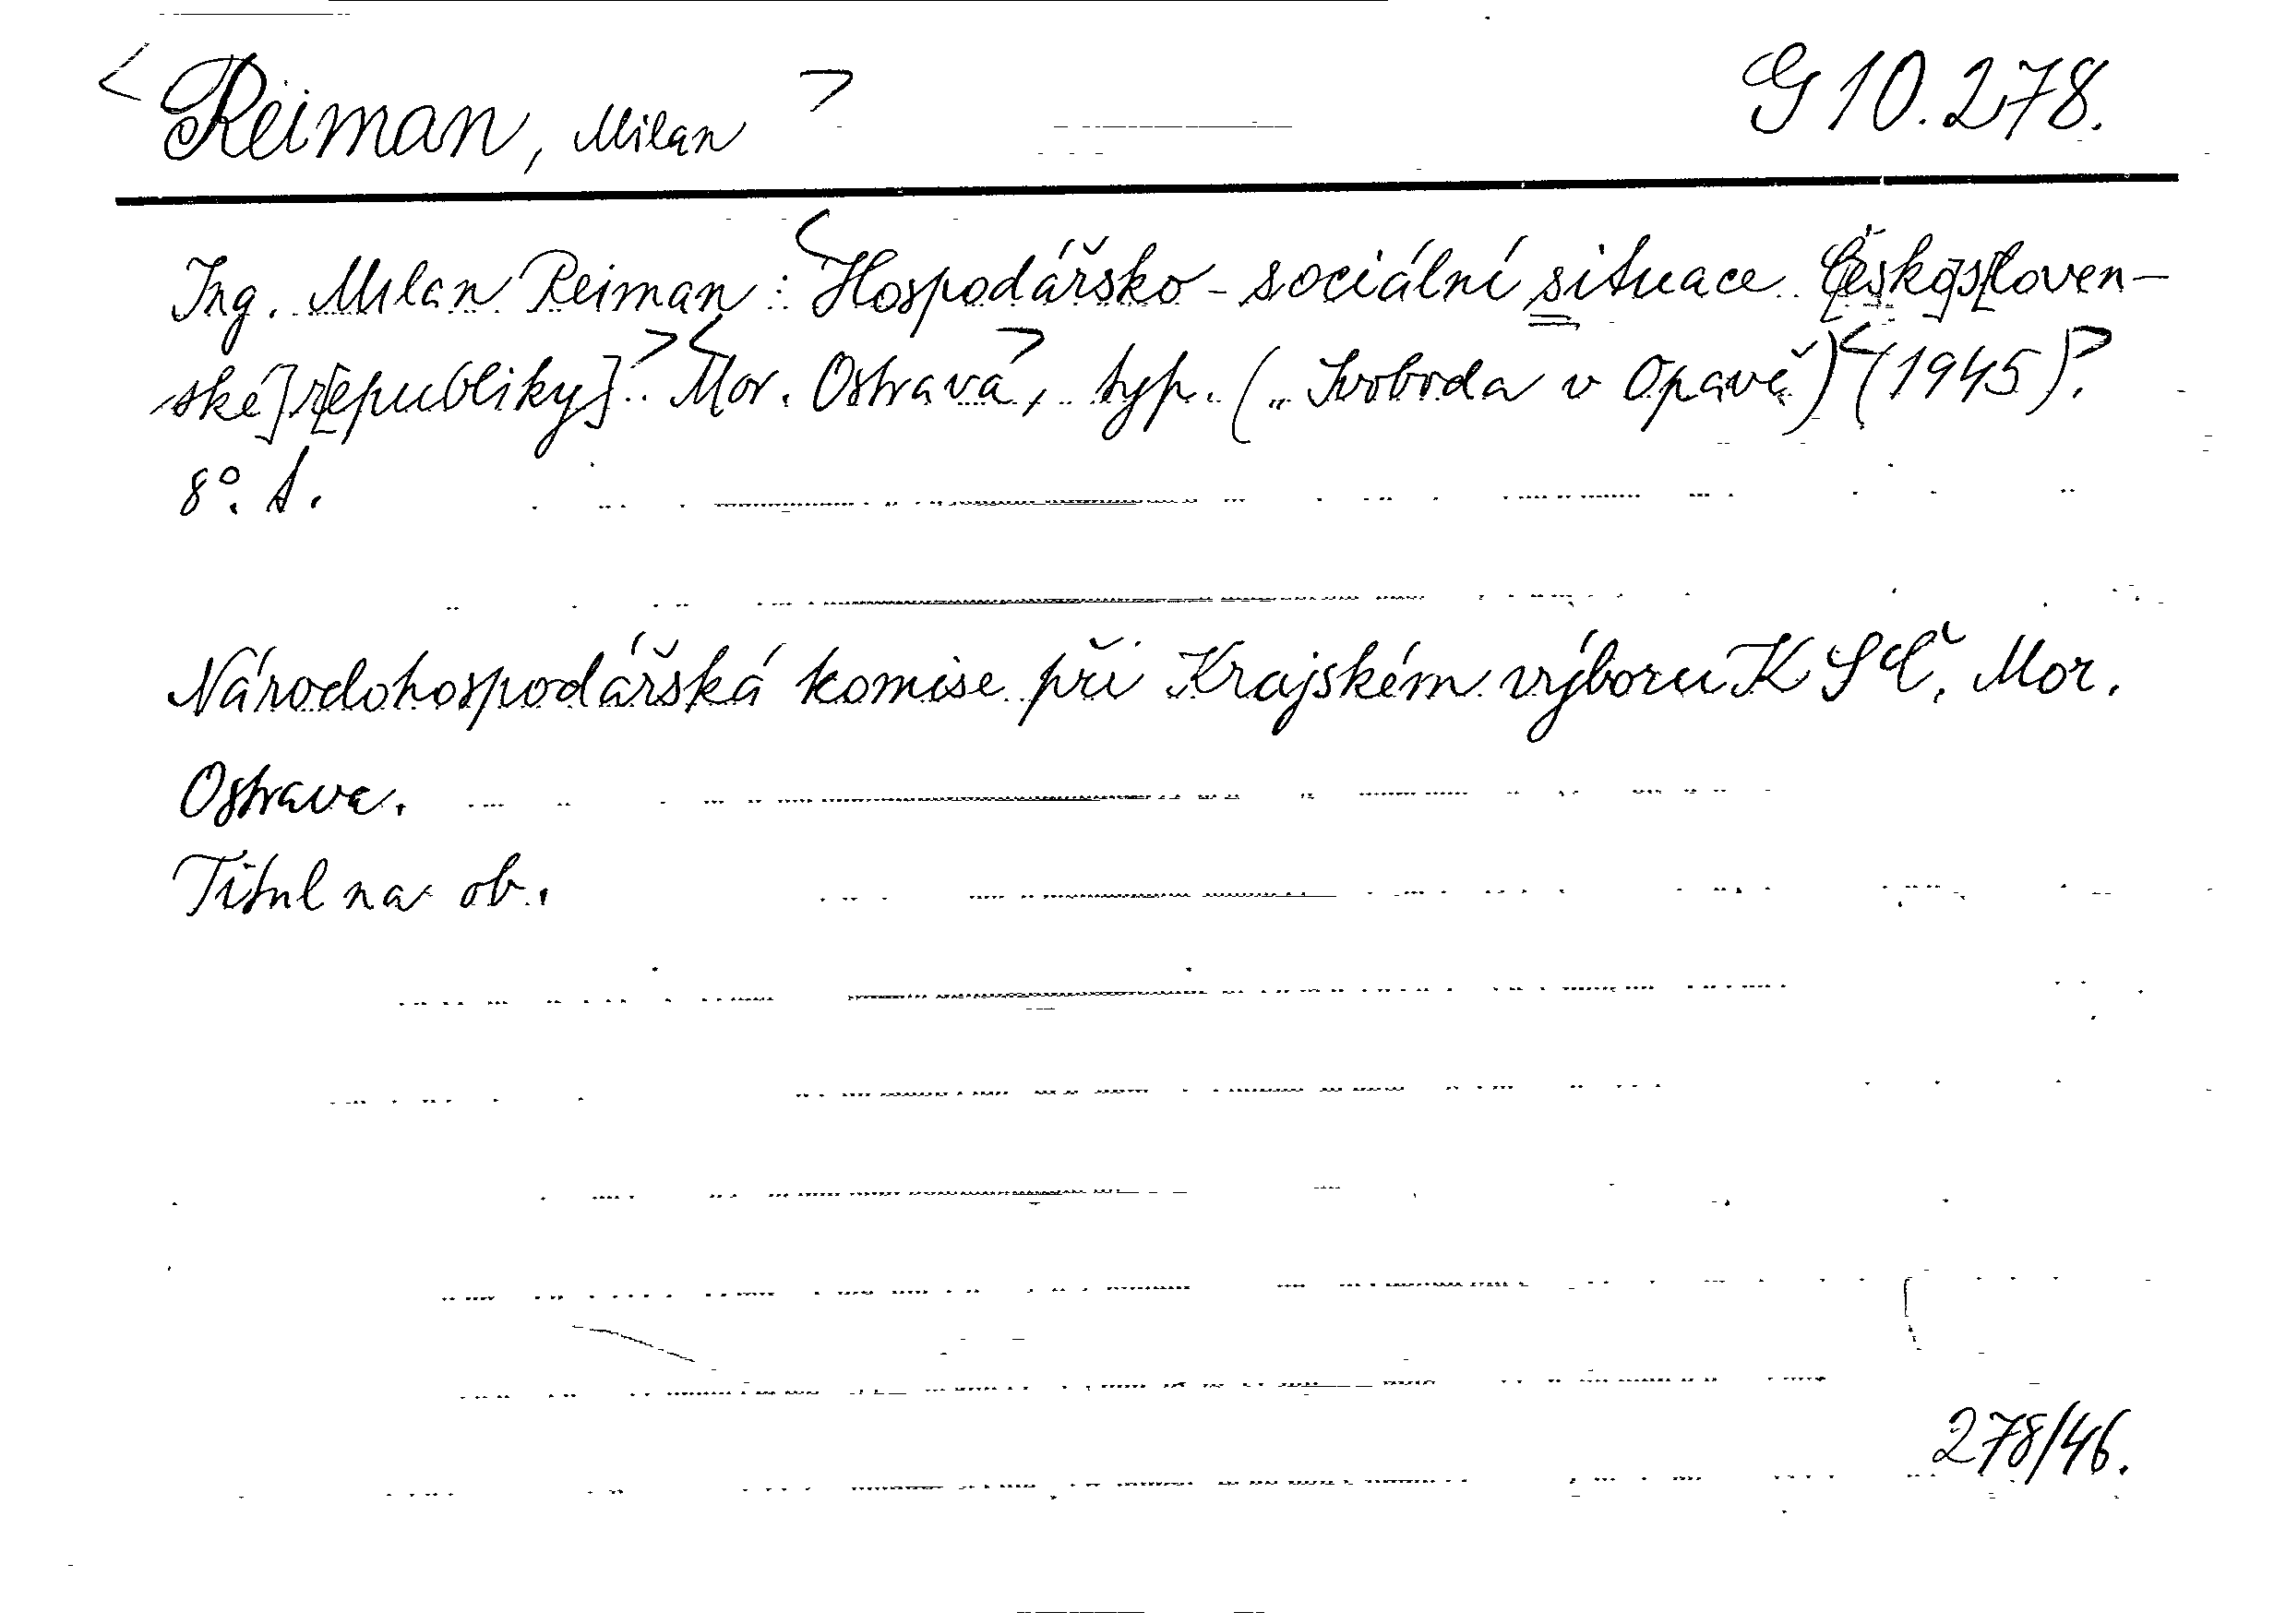 <Reiman, Milan> G 10.278.
Ing. Milan Reiman: <Hospodářsko-sociální situace Č[esko]s[loven-
ské] r[epubliky].> <Mor. Ostrava>, typ. („Svoboda v Opavě) <(1945)>.
8°. s.
Národohospodářská komise při Krajském výboru KSČ, Mor.
Ostrava.
Titul na ob.
278/46.